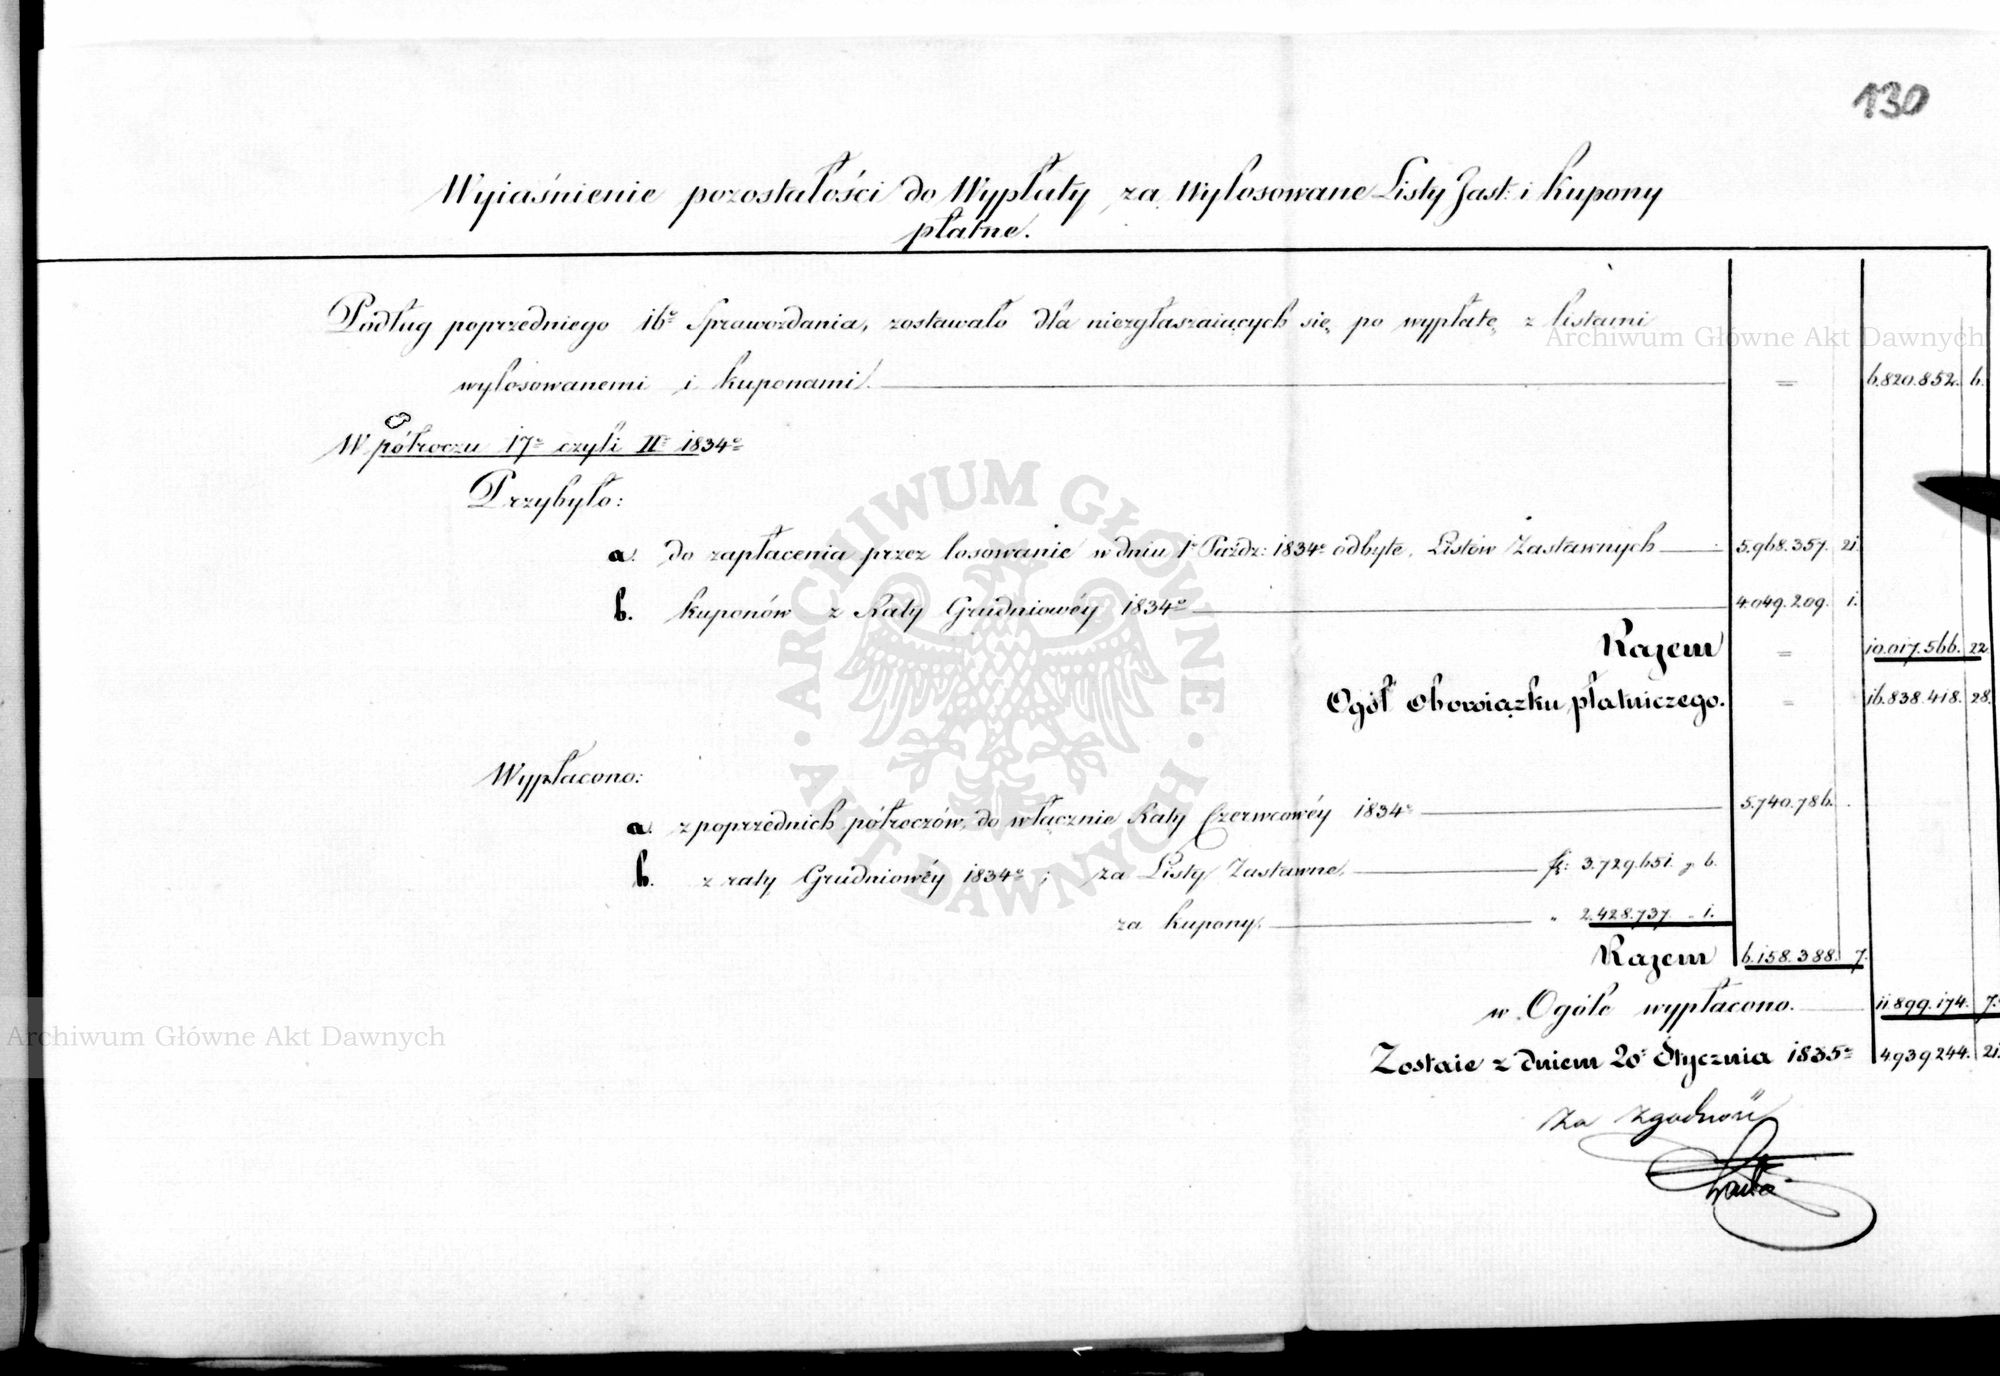 130
Wyiaśnienie pozostałości do Wypłaty, za Wylosowane Listy Zast: i Kupony
płatne.
Podług poprzedniego 16º Sprawozdania, zostawało dla niezgłaszaiących się po wypłatę z listami
wylosowanemi i kuponami = 6.820.852. 6.
W półroczu 17º czyli IIº 1834º
Przybyło:
a. do zapłacenia przez losowanie w dniu 1º Paźdz: 1834º odbyte, Listów Zastawnych 5.968.357. 21.
b. kuponów z Raty Grudniowéy 1834º 4.049.209. 1.
Razem = 10.017.566. 22
Ogół obowiązku płatniczego. = 16.838.418. 28.
Wypłacono:
a. z poprzednich półroczów, do włącznie Raty Czerwcowéy 1834º 5.740.786. .
b. z raty Grudniowéy 1834º; za Listy Zastawne, fl: 3.729.651. g 6.
za kupony, " 2.428.737. " 1.
Razem 6.158.388. 7.
w Ogóle wypłacono. 11.899.174. 7.
Zostaie z dniem 20º Stycznia 1835º 4939244. 21.
Za zgodność
Archiwum Główne Akt Dawnych
Archiwum Główne Akt Dawnych
ARCHIWUM GŁÓWNE · AKT DAWNYCH ·